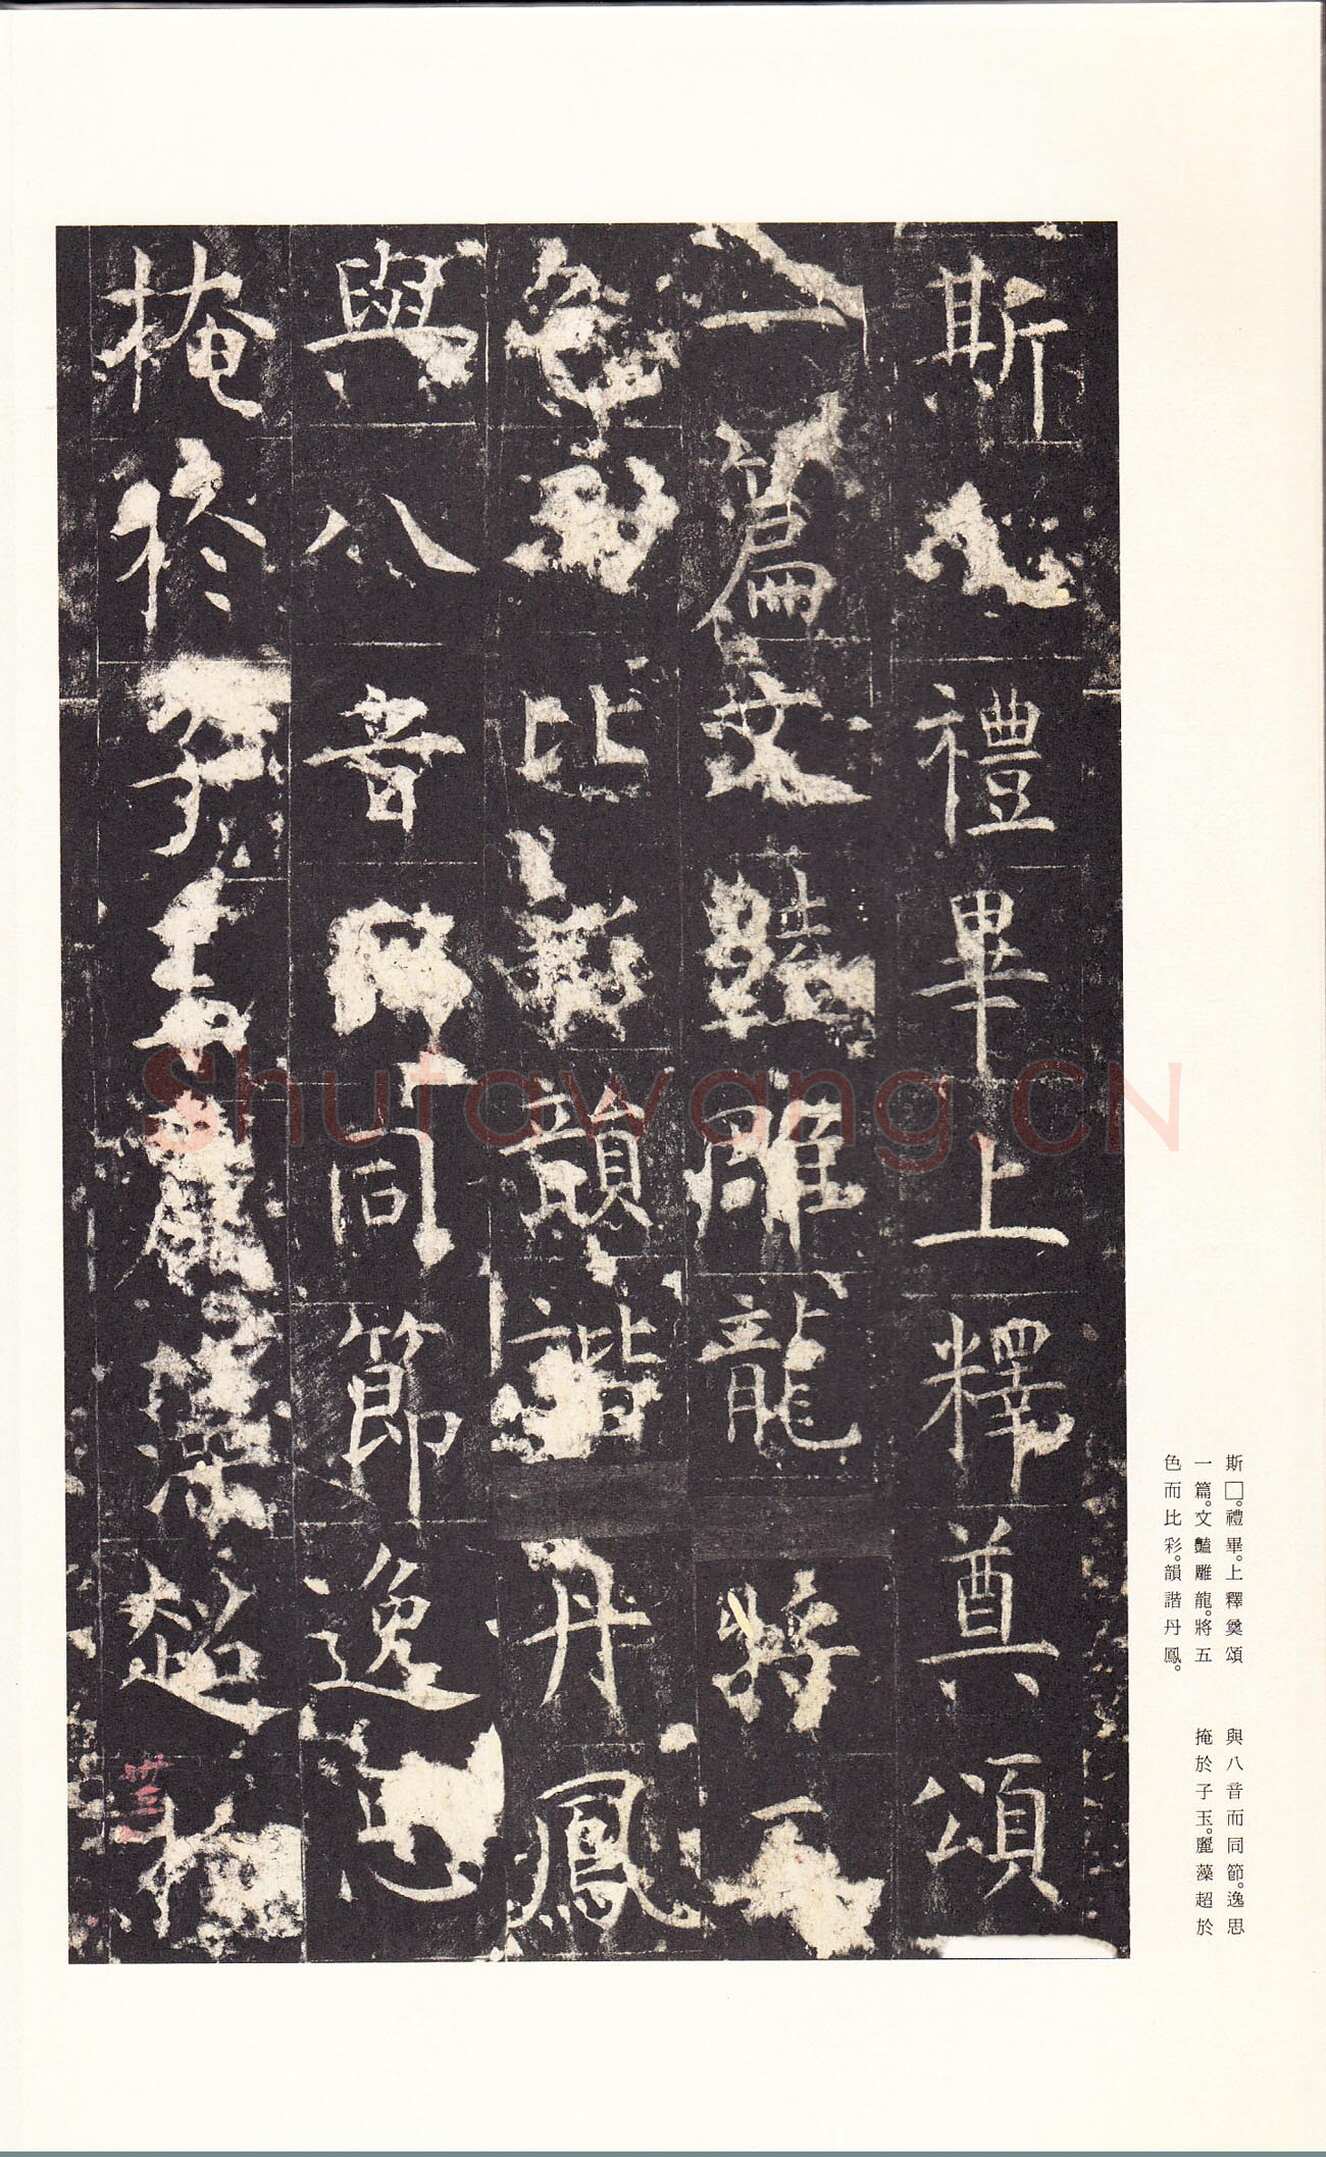 斯□。禮畢。上釋奠頌
一篇。文豔雕龍。將五
色而比彩。韻諧丹鳳。
與八音而同節。逸思
掩於子玉。麗藻超於
斯禮畢上釋奠頌
一篇文豔雕龍將五
色而比彩韻諧丹鳳
與八音而同節逸思
掩於子玉麗藻超於
卅三
Shutawang.CN